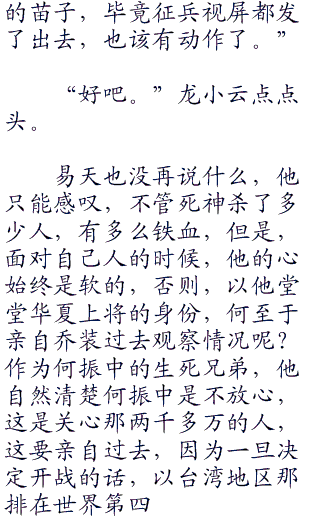 的苗子，毕竟征兵视屏都发
了出去，也该有动作了。”
“好吧。”龙小云点点
头。
易天也没再说什么，他
只能感叹，不管死神杀了多
少人，有多么铁血，但是，
面对自己人的时候，他的心
始终是软的，否则，以他堂
堂华夏上将的身份，何至于
亲自乔装过去观察情况呢？
作为何振中的生死兄弟，他
自然清楚何振中是不放心，
这是关心那两千多万的人，
这要亲自过去，因为一旦决
定开战的话，以台湾地区那
排在世界第四